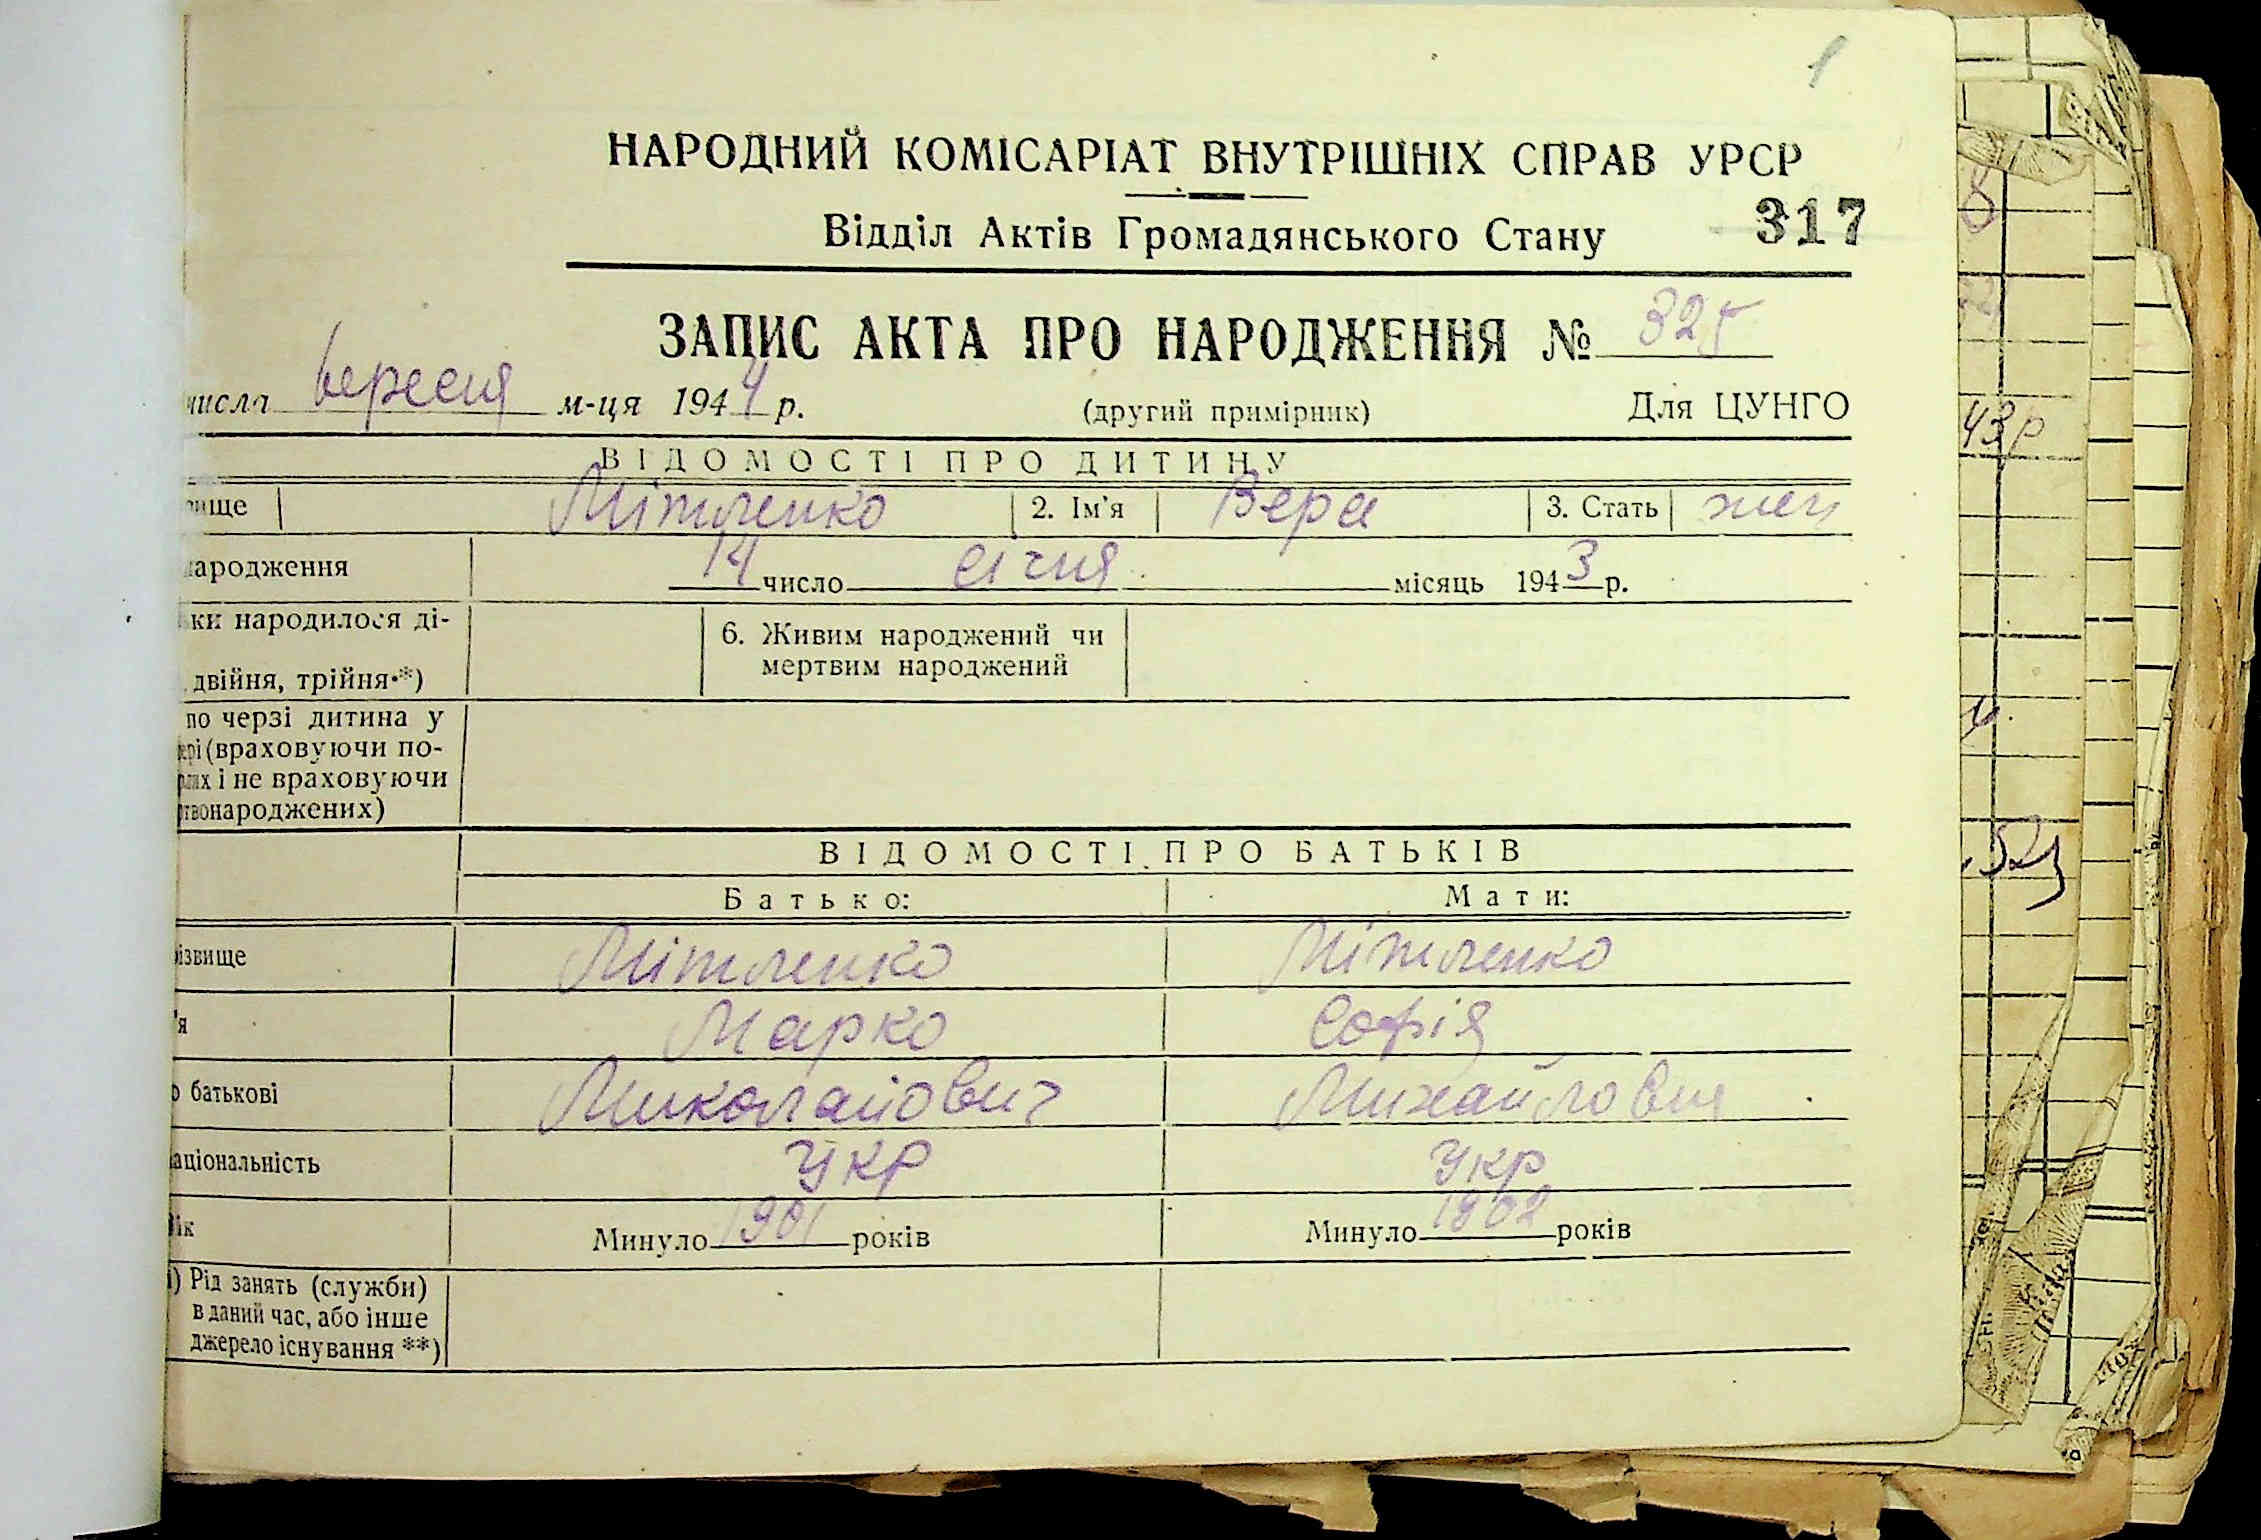 1
НАРОДНИЙ КОМІСАРІАТ ВНУТРІШНІХ СПРАВ УРСР
Відділ Актів Громадянського Стану 317
ЗАПИС АКТА ПРО НАРОДЖЕННЯ № 325
числа вересня м-ця 1944 р. (другий примірник) Для ЦУНГО
ВІДОМОСТІ ПРО ДИТИНУ
Мітленко 2. Ім'я Вера 3. Стать жен
народження 14 число січня місяць 1943 р.
народилося ді-
6. Живим народжений чи
мертвим народжений
двійня, трійня *)
по черзі дитина у
(враховуючи по-
і не враховуючи
народжених)
ВІДОМОСТІ ПРО БАТЬКІВ
Батько: Мати:
ізвище Мітленко Мітленко
'я Марко Софія
батькові Миколайович Михайловна
аціональність укр укр
ік Минуло 1901 років Минуло 1902 років
) Рід занять (служби)
в даний час, або інше
джерело існування **)
43р